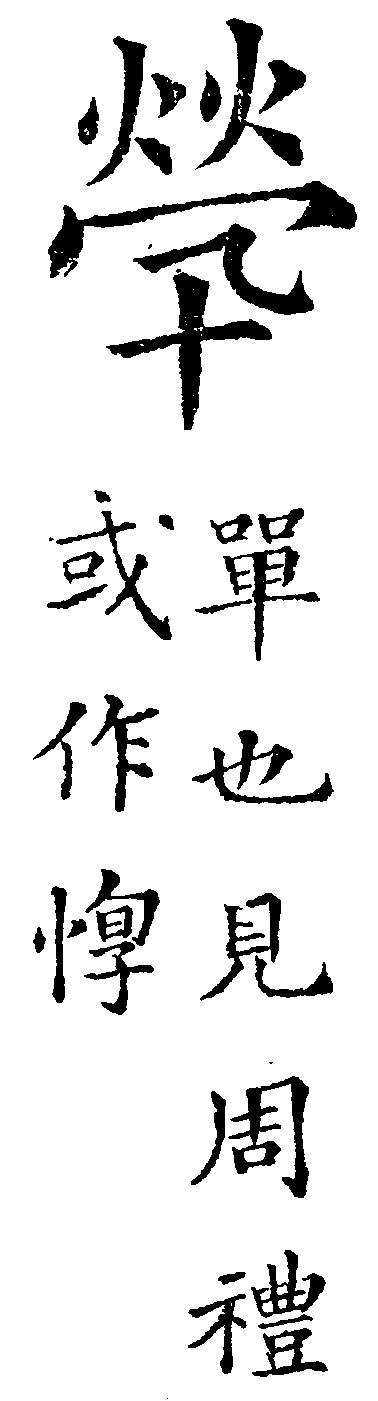 煢
單也見周禮
或作惸